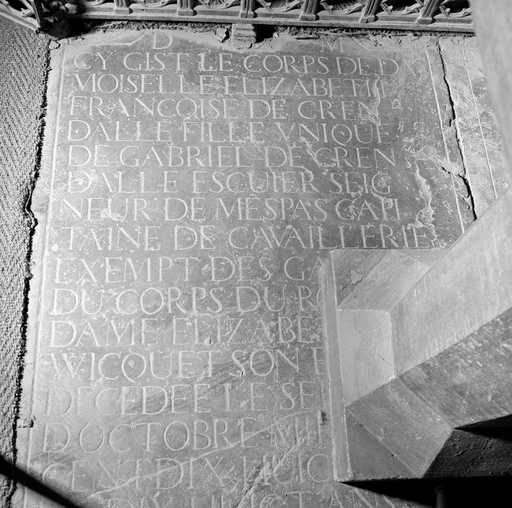 CY GIST LE CORPS DE D
MOISELLE ELIZABETH
FRANCOISE DE GREN
DALLE FILLE VNIQUE
DE GABRIEL DE GREN
DALLE ESCUIER SEIG
NEUR DE MESPAS CAPI
TAINE DE CAVAILLERIE
EXEMPT DES GA
DU CORPS DU RO
DAME ELIZABE
WICQUET SON E
DECEDEE LE SE
D'OCTOBRE MIL
CENT DIX HUIC